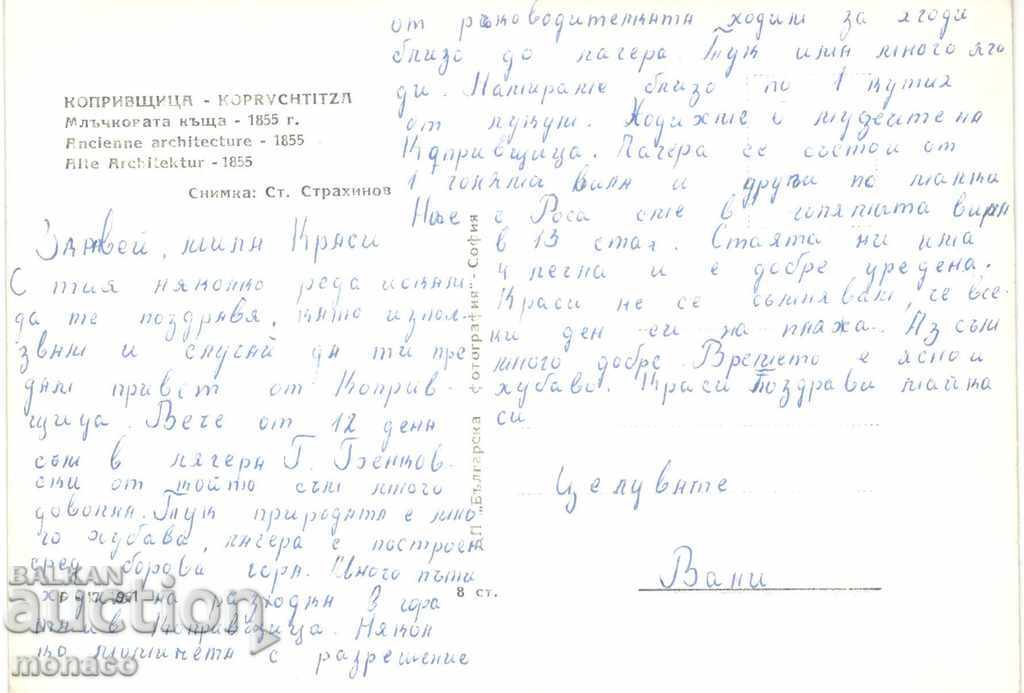 КОПРИВЩИЦА - KOPRVCHTITZA
Млъчковата къща - 1855 г.
Ancienne architecture - 1855
Alte Architektur - 1855
Снимка: Ст. Страхинов
Здравей, мили Краси
С тия няколко реда искам
да те поздравя, като изпол-
звам и случай да ти пре
дам привет от Коприв-
щица. Вече от 12 дена
съм в лагера Г. Бенков-
ски от който съм много
доволна. Тук природата е мно
го хубава, лагера е построен
сред борова гора. Много пъти
на разходки в гора
и в Копривщица. Някол
ко момичета с разрешение
от ръководителката ходим за ягоди
близо до лагера. Тук има много яго
ди. Набираме близо по 1 кутия
от лукум. Ходихме и музеите на
Копривщица. Лагера се състои от
1 голяма вила и други по малки
Ние с Роса сме в голямата вила
в 13 стая. Стаята ни има
4 легла и е добре уредена.
Краси не се съмнявам, че все-
ки ден си на плажа. Аз съм
много добре. Времето е ясно и
хубаво. Краси поздрави майка
си
Целувките
Вали
ДП "Българска фотография" - София
8 ст.
BALKAN
auction
monaco